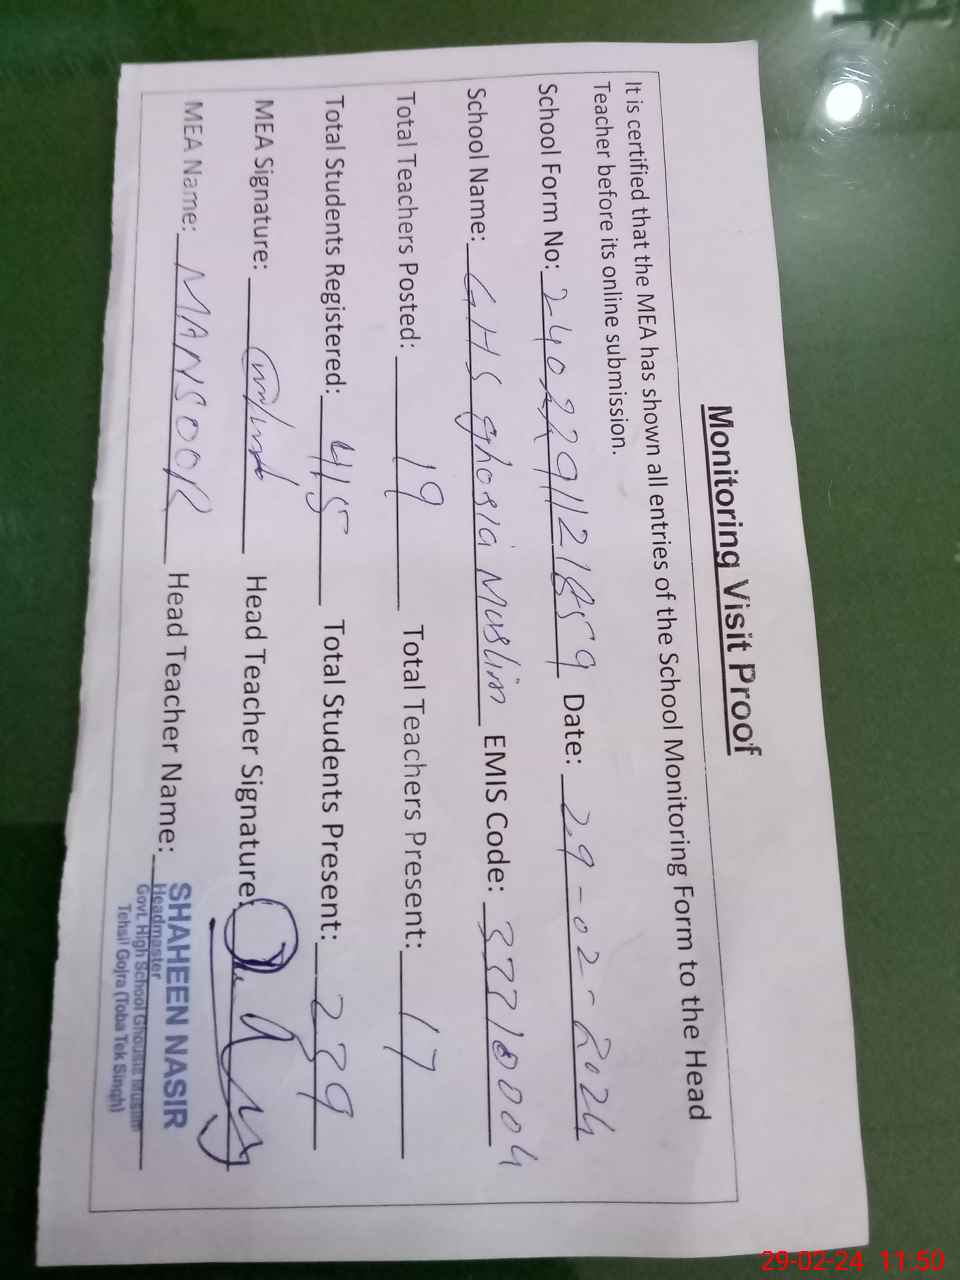 Monitoring Visit Proof
It is certified that the MEA has shown all entries of the School Monitoring Form to the Head
Teacher before its online submission.
School Form No: Date: 29-02-2024
School Name: GHS Ghosia Muslim EMIS Code:
Total Teachers Posted: 19 Total Teachers Present: 17
Total Students Registered: 415 Total Students Present:
MEA Signature: Head Teacher Signature:
MEA Name: MANSOOR Head Teacher Name:
SHAHEEN NASIR
Headmaster
Govt. High School Ghousia Muslim
Tehsil Gojra (Toba Tek Singh)
29-02-24 11:50